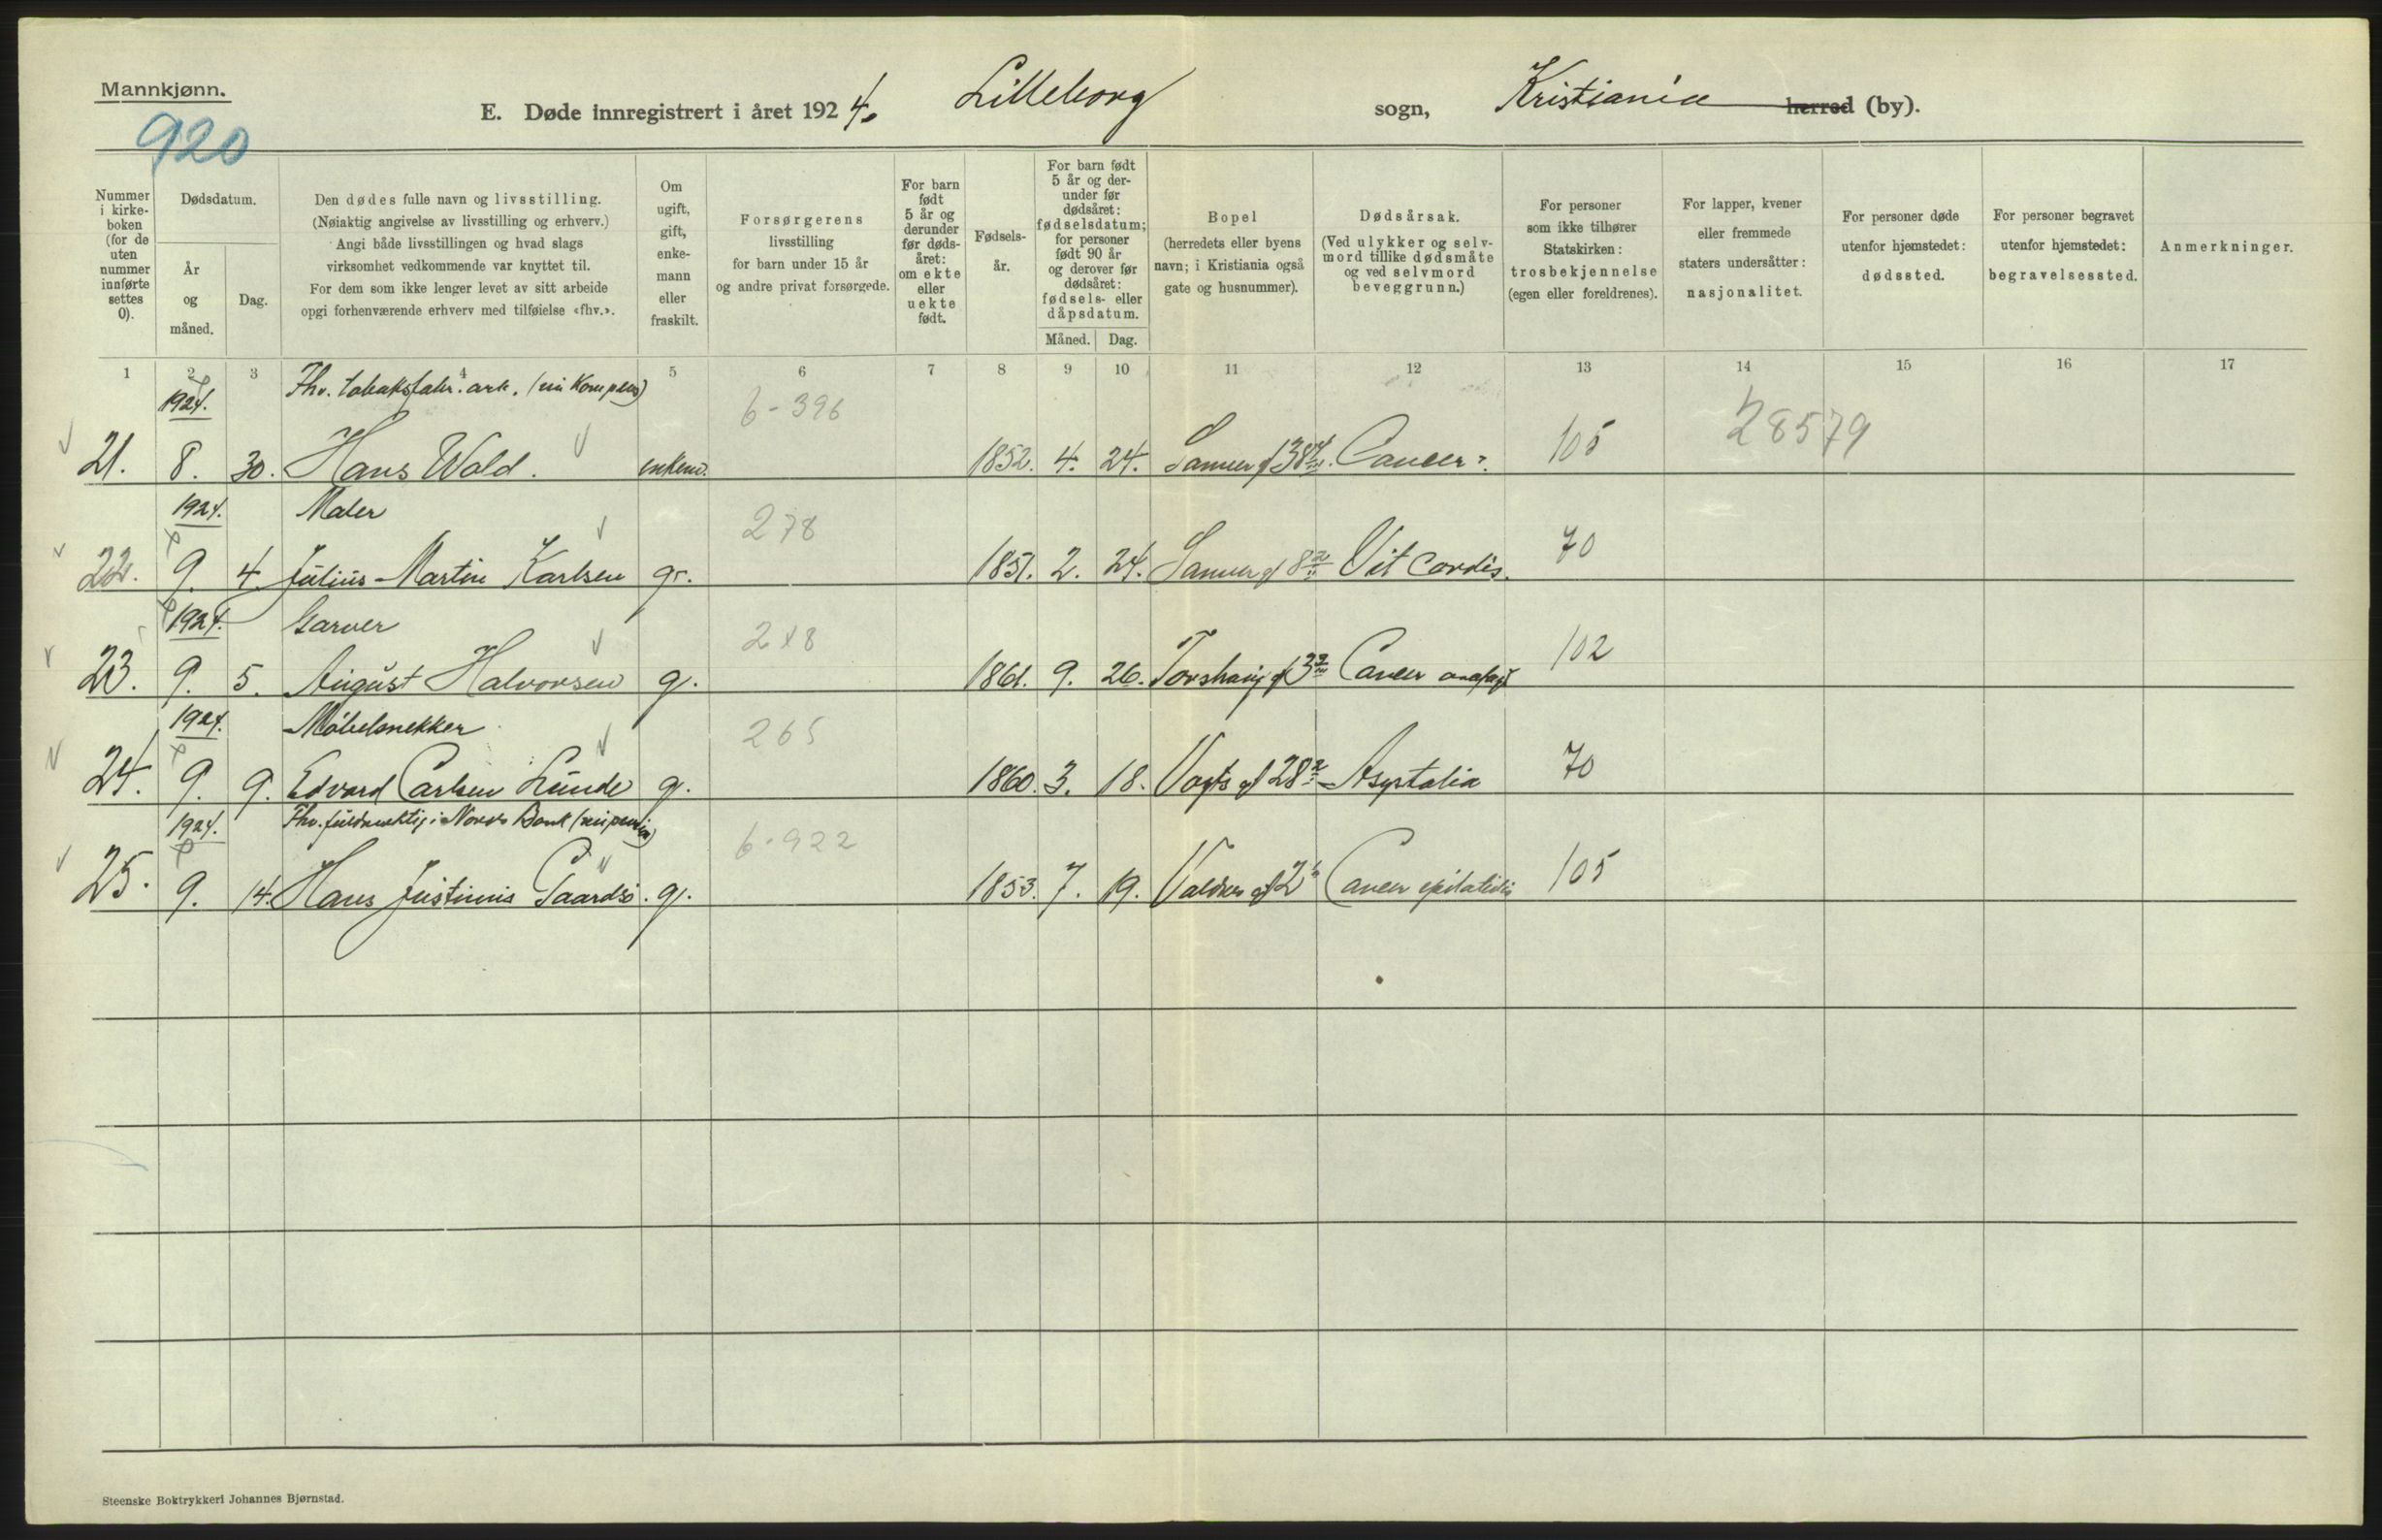 Mannkjønn.
920
E. Døde innregistrert i året 1924. Lilleborg sogn, Kristiania herred (by).
Nummer i kirke-boken (for de uten nummer innførte settes 0).
Dødsdatum.
År og måned.
Dag.
Den dødes fulle navn og livsstilling.
(Nøiaktig angivelse av livsstilling og erhverv.)
Angi både livsstillingen og hvad slags
virksomhet vedkommende var knyttet til.
For dem som ikke lenger levet av sitt arbeide
opgi forhenværende erhverv med tilføielse «fhv.».
Om ugift, gift, enke-mann eller fraskilt.
Forsørgerens
livsstilling
for barn under 15 år
og andre privat forsørgede.
For barn født 5 år og derunder før døds-året: om ekte eller uekte født.
Fødsels-år.
For barn født 5 år og der-under før dødsåret: fødselsdatum; for personer født 90 år og derover før dødsåret: fødsels- eller dåpsdatum.
Måned.
Dag.
Bopel
(herredets eller byens
navn; i Kristiania også
gate og husnummer).
Dødsårsak.
(Ved ulykker og selv-
mord tillike dødsmåte
og ved selvmord
beveggrunn.)
For personer
som ikke tilhører
Statskirken:
trosbekjennelse
(egen eller foreldrenes).
For lapper, kvener
eller fremmede
staters undersåtter:
nasjonalitet.
For personer døde
utenfor hjemstedet:
dødssted.
For personer begravet
utenfor hjemstedet:
begravelsessted.
Anmerkninger.
1 2 3 4 5 6 7 8 9 10 11 12 13 14 15 16 17
1924. Fhv. tobaksfabr. arb. 6-396 28579
21. 8. 30. Hans Wold. enkem. 1852. 4. 24. 38 Cancer. 105
1924. Maler 278
22. 9. 4. Julius Martin Karlsen g. 1851. 2. 24. 8 Vit cordis. 70
1924. Garver 248
23. 9. 5. August Halvorsen g. 1861. 9. 26. Torshaug gt 3 Cancer 102
1924. Møbelsnekker 265
24. 9. 9. Edvard Carlsen Lunde g. 1860. 3. 18. Vogts gt 28 Asystolia 70
1924. Fhv. fuldmektig i Norges Bank 6-922
25. 9. 14. Hans Justinus g. 1853. 7. 19. Valdres gt 2 Cancer 105
Steenske Boktrykkeri Johannes Bjørnstad.